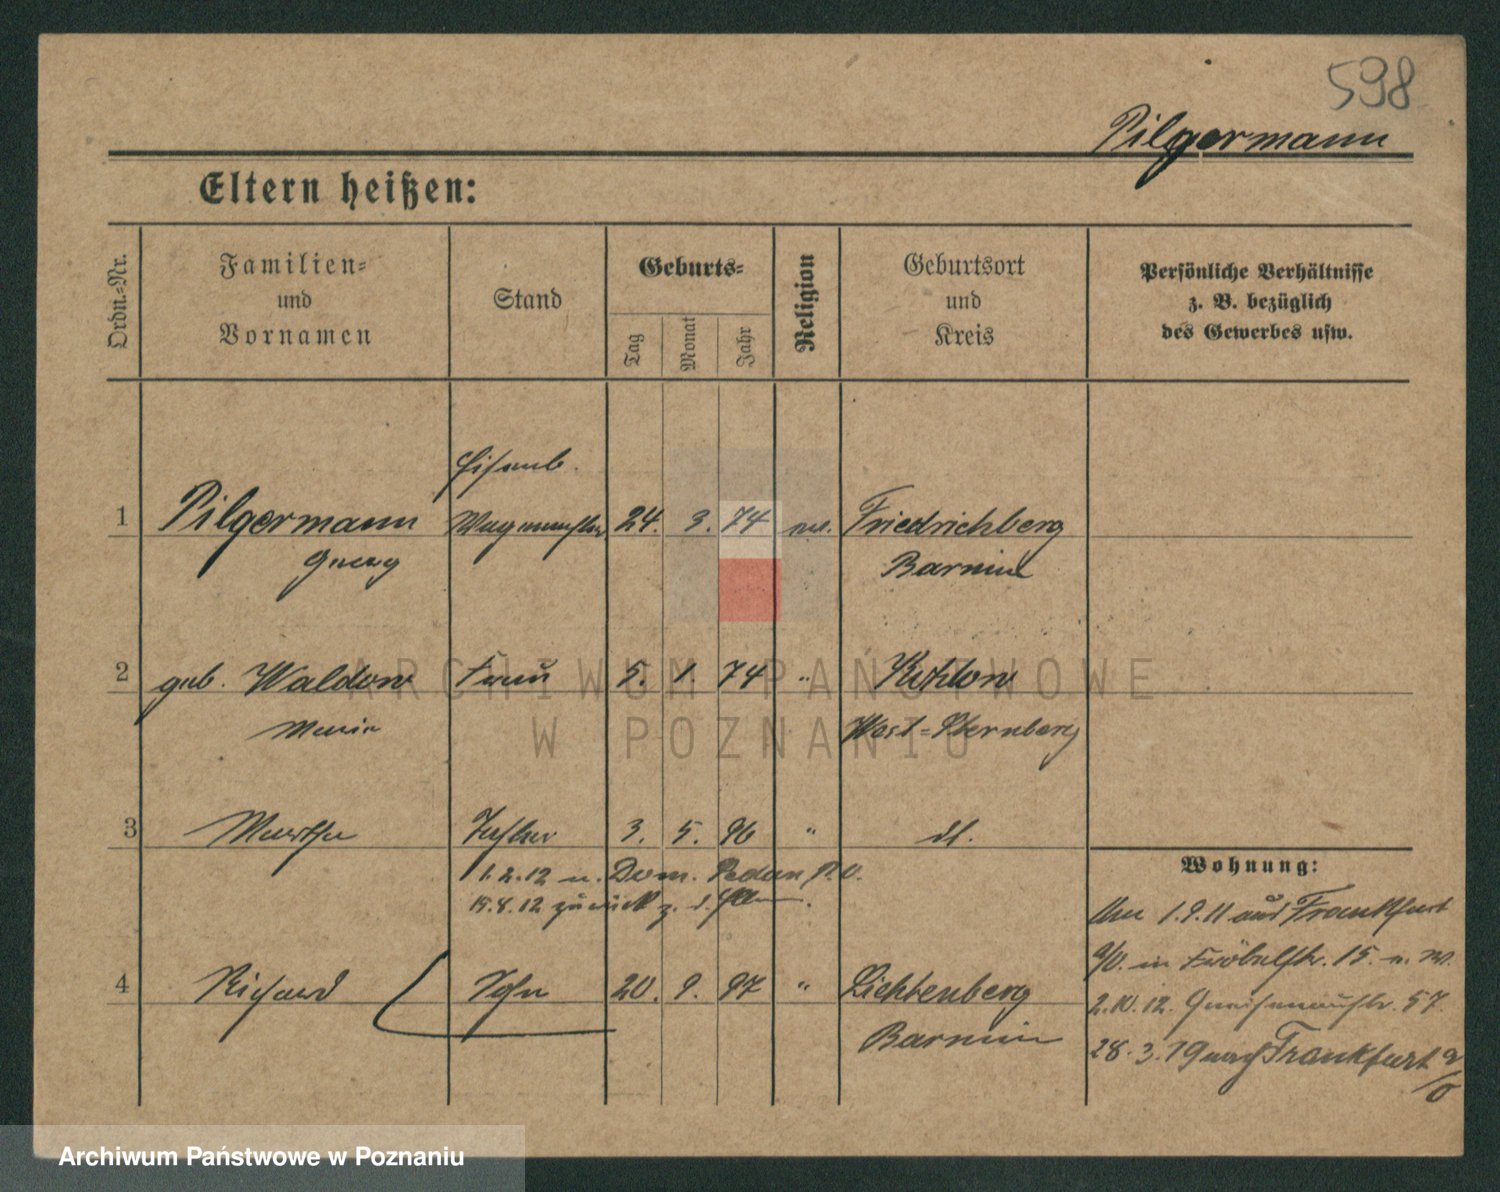 598
Pilgermann
Eltern heißen:
Ordn.-Nr.
Familien-
und
Vornamen
Stand
Geburts-
Tag
Monat
Jahr
Religion
Geburtsort
und
Kreis
Persönliche Verhältnisse
z. B. bezüglich
des Gewerbes usw.
Eisenb.
1 Pilgermann 24. 3. 74 Friedrichberg
Georg Barnim
2 geb. Waldow Frau 5. 1. 74 "
Marie West-Sternberg
3 Martha Tochter 3. 5. 96 " dt.
1.2.12 n. Dom.
15.8.12 zurück z. d.
Wohnung:
1.9.11 aus Frankfurt
a/O. in Fröbelstr. 15. n. W.
4 Richard Sohn 20. 9. 97 " Lichtenberg
Barnim
2.10.12. Gneisenaustr. 57.
28.3.19 nach Frankfurt a/O
ARCHIWUM PAŃSTWOWE
W POZNANIU
Archiwum Państwowe w Poznaniu